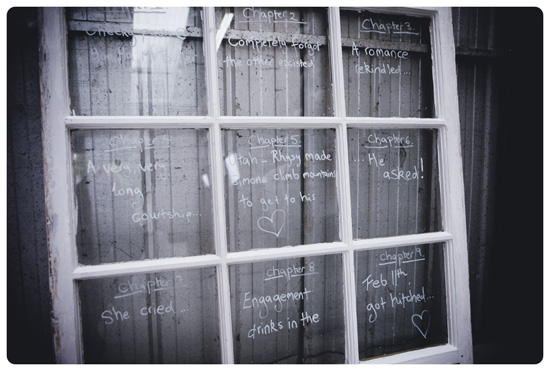 Chapter 2
Completely forgot
the other existed
Chapter 3
A romance
rekindled...
A very, very
long
courtship...
Chapter 5
Utah - Rhysy made
simone climb mountains
to get to his
Chapter 6
...He
asked!
Chapter 7
She cried...
Chapter 8
Engagement
drinks in the
Chapter 9
Feb 11th,
got hitched...